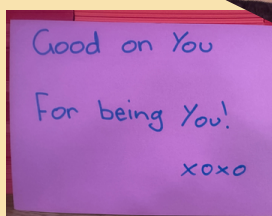 Good on You
For being You!
xoxo